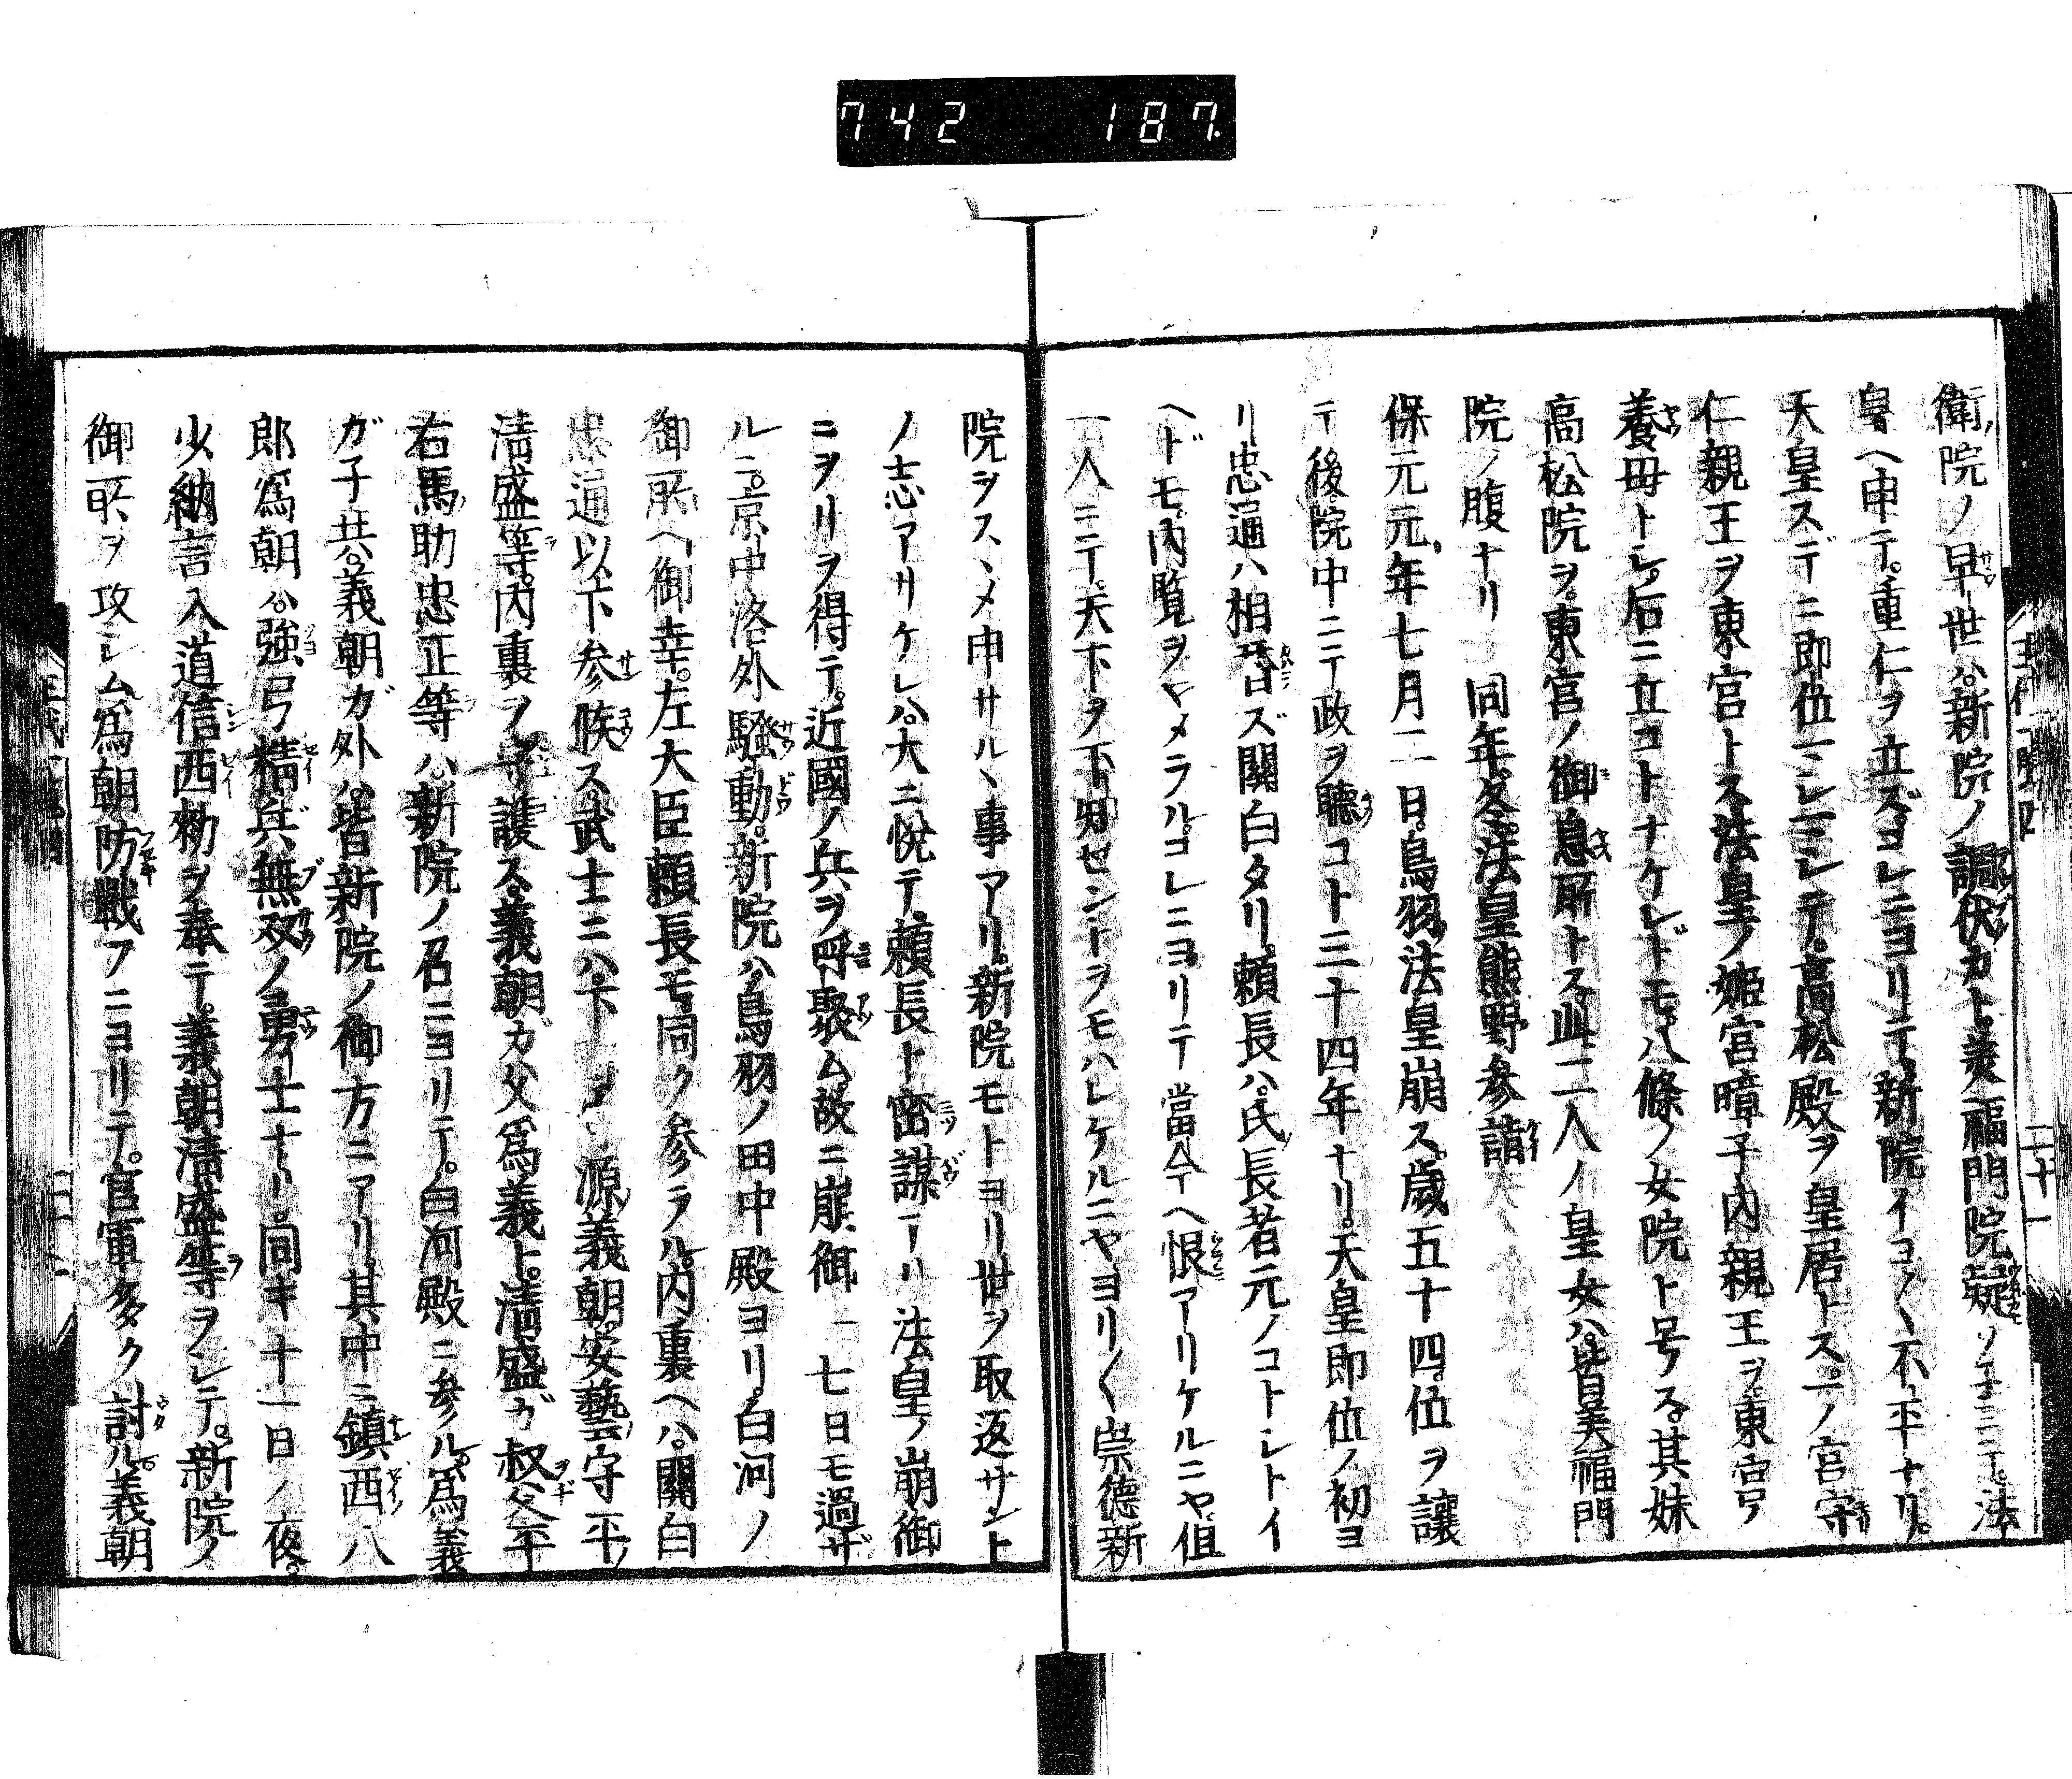 742 187
衛院ノ早世ハ。新院ノ調伏カト。美福門院疑ソネミテ。法
皇ヘ申テ。重仁ヲ立ズ。コレニヨリテ。新院イヨ〱不平ナリ。
天皇スデニ即位マシ〱テ。高松殿ヲ皇居トス。一ノ宮守
仁親王ヲ東宮トス。法皇ノ姫宮暲子内親王ヲ。東宮
養母トシ。后ニ立コトナケレドモ。八條ノ女院ト号ス。其妹
高松院ヲ。東宮ノ御息所トス。此二人ノ皇女ハ。皆美福門
院ノ腹ナリ 同年冬。法皇熊野参詣
保元元年七月二日。鳥羽法皇崩ス。歳五十四。位ヲ讓
テ後。院中ニテ政ヲ聽コト三十四年ナリ。天皇即位ノ初ヨ
リ忠通ハ相替ズ關白タリ。頼長ハ。氏長者元ノコトシトイ
ヘドモ。内覧ヲヤメラル。コレニヨリテ當今ヘ恨アリケルニヤ。但
一人ニテ。天下ヲ不知セントヲモハレケルニヤヨリ〱崇徳新
院ヲスヽメ申サルヽ事アリ。新院モトヨリ世ヲ取返サント
ノ志アリケレハ。大ニ悦テ。頼長ト密謀アリ 法皇ノ崩御
ニヲリヲ得テ。近國ノ兵ヲ呼聚ム。故ニ崩御 一七日モ過ザ
ルニ。京中洛外騒動。新院ハ。鳥羽ノ田中殿ヨリ。白河ノ
御所ヘ御幸。左大臣頼長モ。同ク参ラル。内裏ヘハ。關白
忠通以下参候ス。武士ニハ。下 源義朝。安藝守平
清盛等。内裏ヲ守護ス。義朝ガ父爲義ト。清盛ガ叔父平
右馬助忠正等ハ。新院ノ召ニヨリテ。白河殿ニ参ル。爲義
ガ子共。義朝ガ外ハ。皆新院ノ御方ニアリ。其中ニ鎮西八
郎爲朝ハ。強弓精兵無双ノ勇士ナリ。同キ十一日ノ夜。
少納言入道信西勅ヲ奉テ。義朝清盛等ヲシテ。新院ノ
御所ヲ攻シム。爲朝防戰フニヨリテ。官軍多ク討ル。義朝